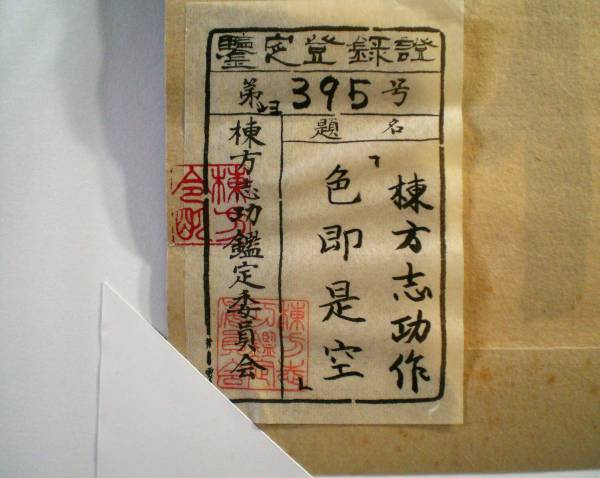 鑒定登録證
第 395 号
名題
棟方志功作
「色即是空」
棟方志功鑑定委員会